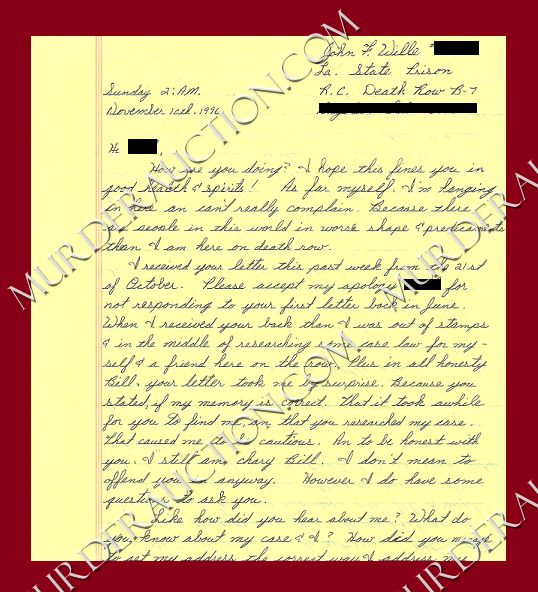 John F. Wille #
La. State Prison
Sunday 2:A.M. R.C. Death Row B-7
November 10th, 1996
Hi ,
How are you doing? I hope this fines you in
good health & spirits! As far myself, I'm hanging
in here an can't really complain. Because there
are people in this world in worse shape & predicaments
than I am here on death row.
I received your letter this past week from the 21st
of October. Please accept my apology for
not responding to your first letter back in June.
When I received your back than I was out of stamps
& in the middle of researching some case law for my-
self & a friend here on the row. Plus in all honesty
Bill, your letter took me by surprise. Because you
stated, if my memory is correct. That it took awhile
for you to find me, an that you rasearched my case.
That caused me to be cautious. An to be honest with
you. I still am, chary Bill. I don't mean to
offend you in anyway. However I do have some
questions to ask you.
Like how did you hear about me? What do
you know about my case & I? How did you manage
to get my address the correct way & address my
MURDERAUCTION.COM